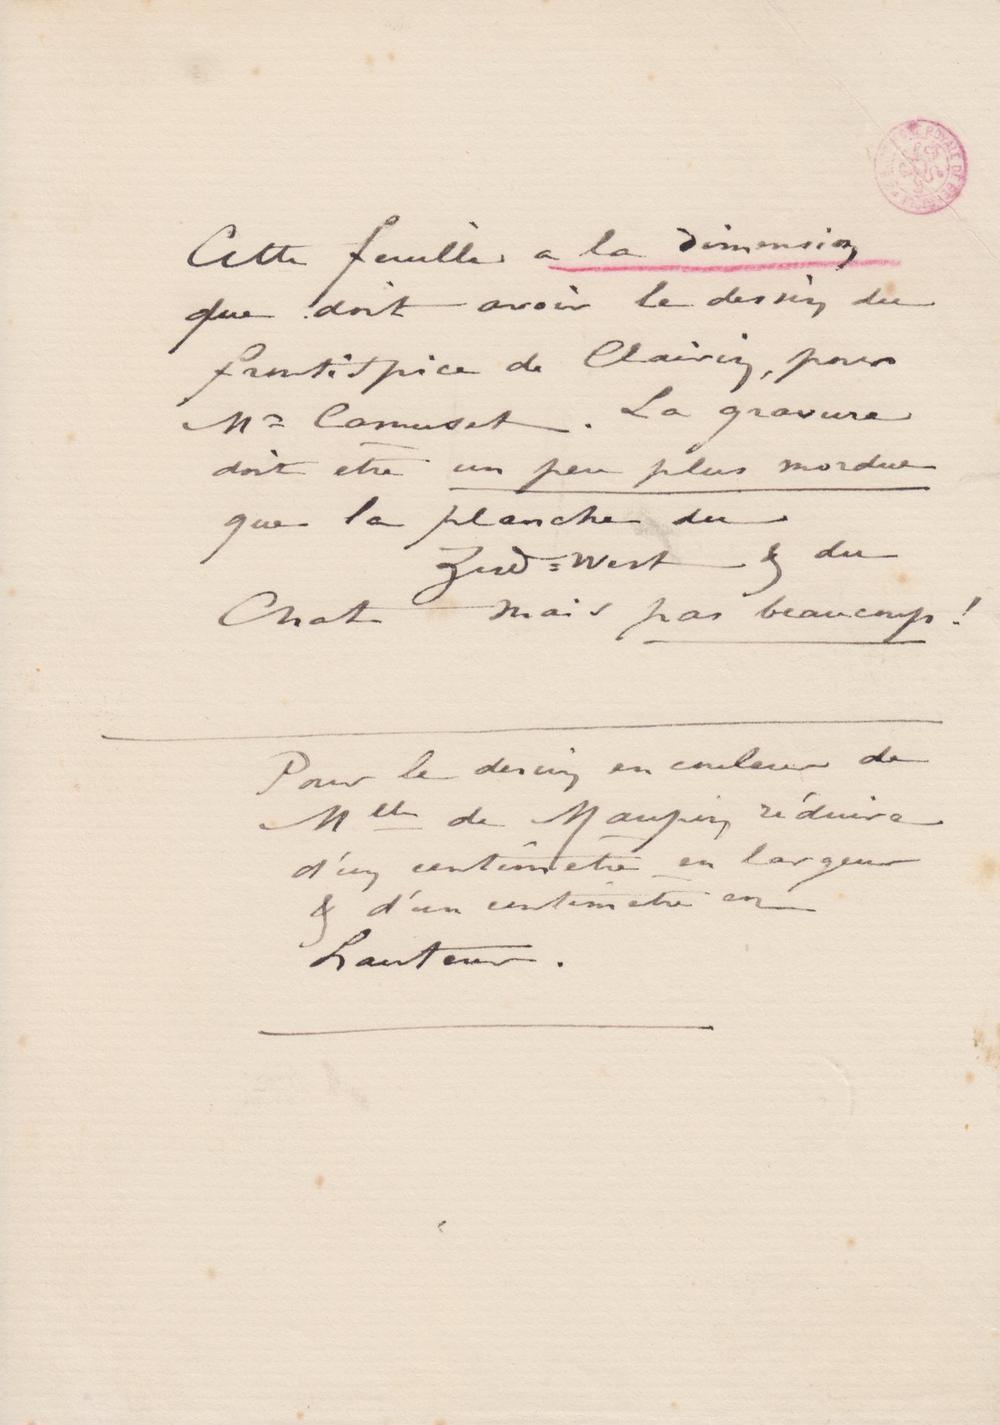 BIBLIOTHÈQUE ROYALE DE BELGIQUE
Cette feuille a la dimension
que doit avoir le dessin du
frontispice de Clairin, pour
Mr Camuset. La gravure
doit etre un peu plus mordue
que la planche du
Zud=West & du
Chat mais pas beaucoup!
Pour le dessin en couleur de
Mlle de Maupin réduire
d'un centimetre en largeur
& d'un centimetre en
hauteur.